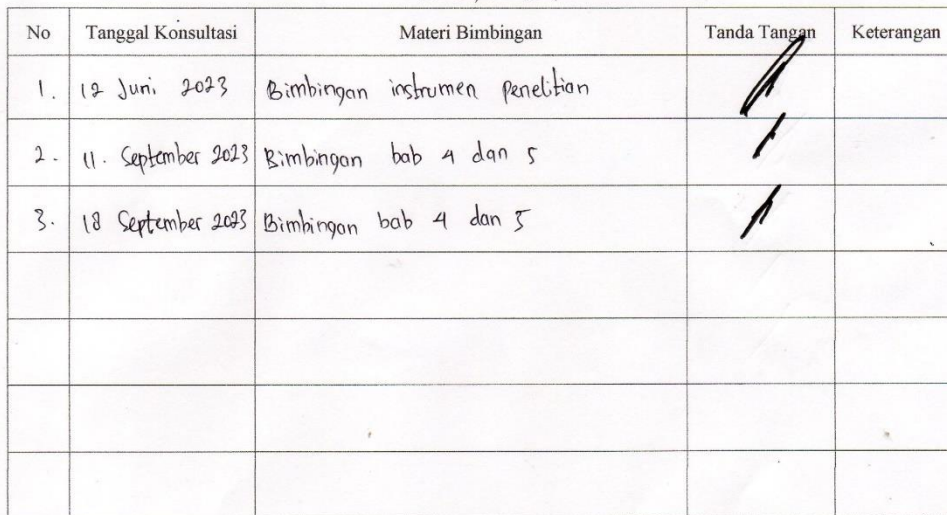 No Tanggal Konsultasi Materi Bimbingan Tanda Tangan Keterangan
1. 12 Juni 2023 Bimbingan instrumen penelitian
2. 11. September 2023 Bimbingan bab 4 dan 5
3. 18 September 2023 Bimbingan bab 4 dan 5